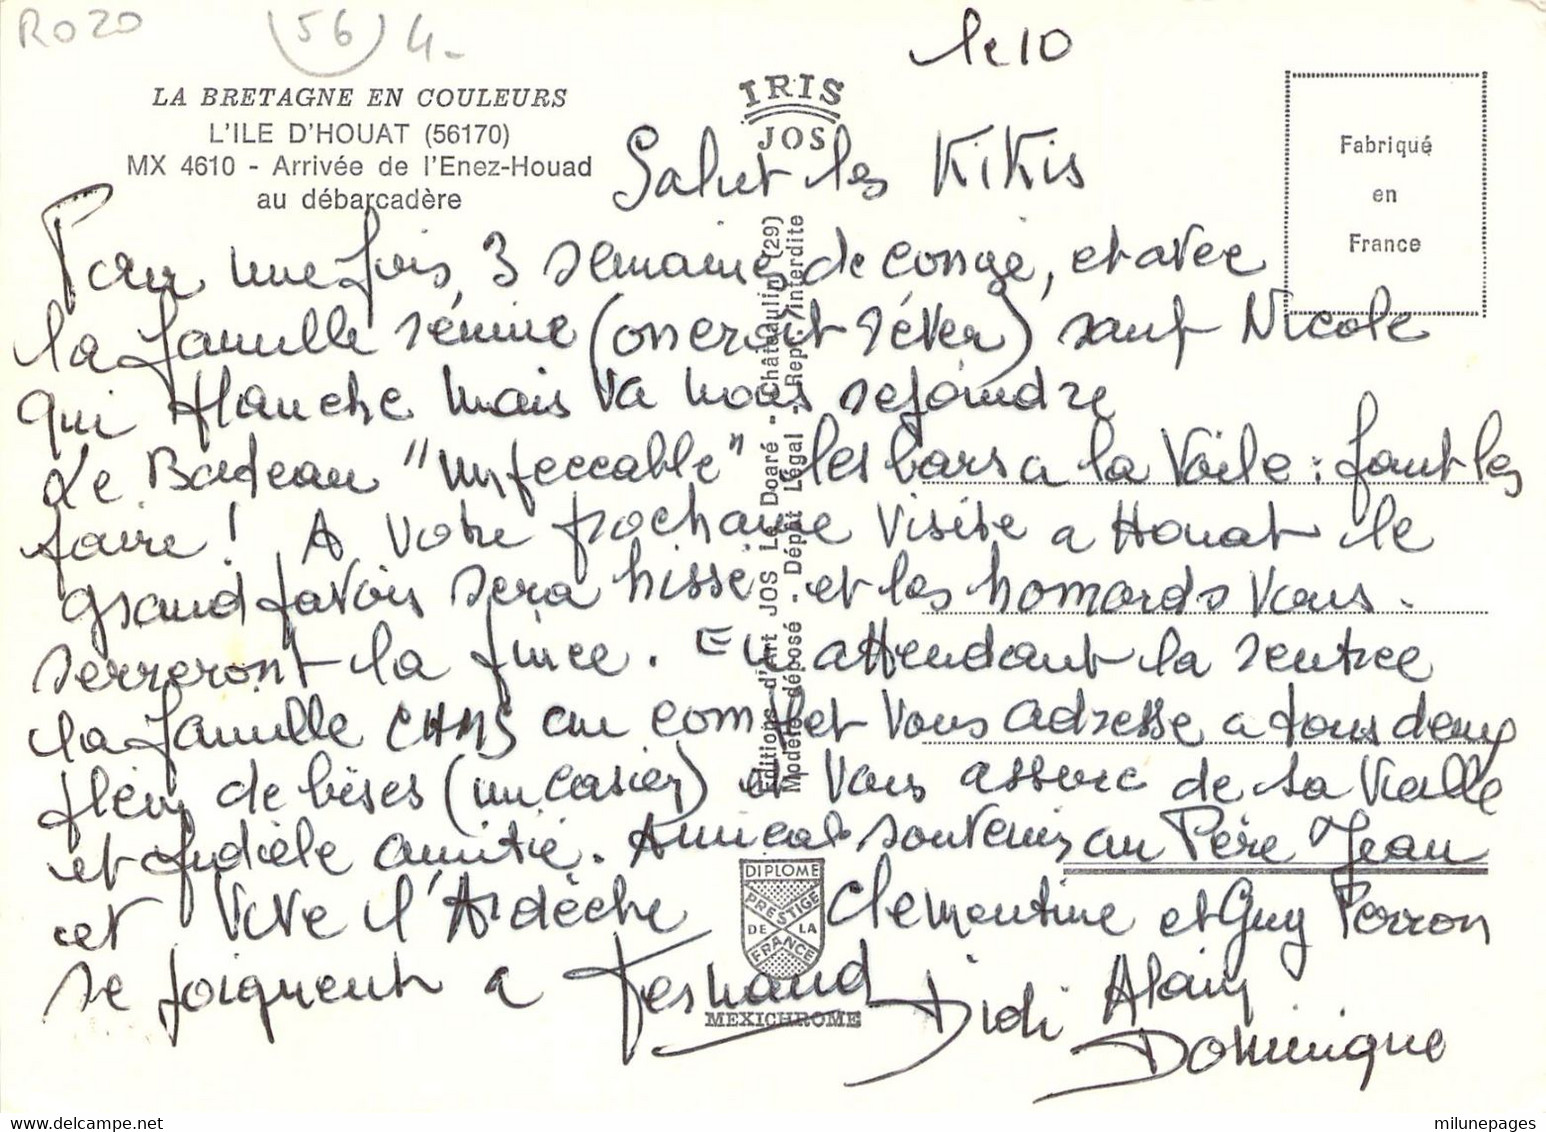 R020 (56) 4-
le 10
LA BRETAGNE EN COULEURS
L'ILE D'HOUAT (56170)
MX 4610 - Arrivée de l'Enez-Houad
au débarcadère
IRIS
JOS
Fabriqué
en
France
Salut les Kikis
Pour une fois, 3 semaines de congé, et avec
la famille réunie (on croit rêver) sauf Nicole
qui flanche mais va nous rejoindre
Le Bateau "impeccable" les bars a la voile : faut les
faire ! A votre prochaine visite a Houat le
grand pavois sera hissé et les homards vous
serreront la pince. En attendant la rentrée
la famille au complet vous adresse a tous deux
plein de bises (un casier) et vous assure de sa vieille
et fidèle amitié. Amical souvenir au Père Jean
et Vive l'Ardèche Clementine et Guy Perron
se joignent a Fernand Didi Alain
Dominique
Editions d'Art JOS Le Doaré - Châteaulin (29)
Modèle déposé . Dépôt Légal . Repr. interdite
DIPLOME
PRESTIGE
DE LA
FRANCE
MEXICHROME
milunepages